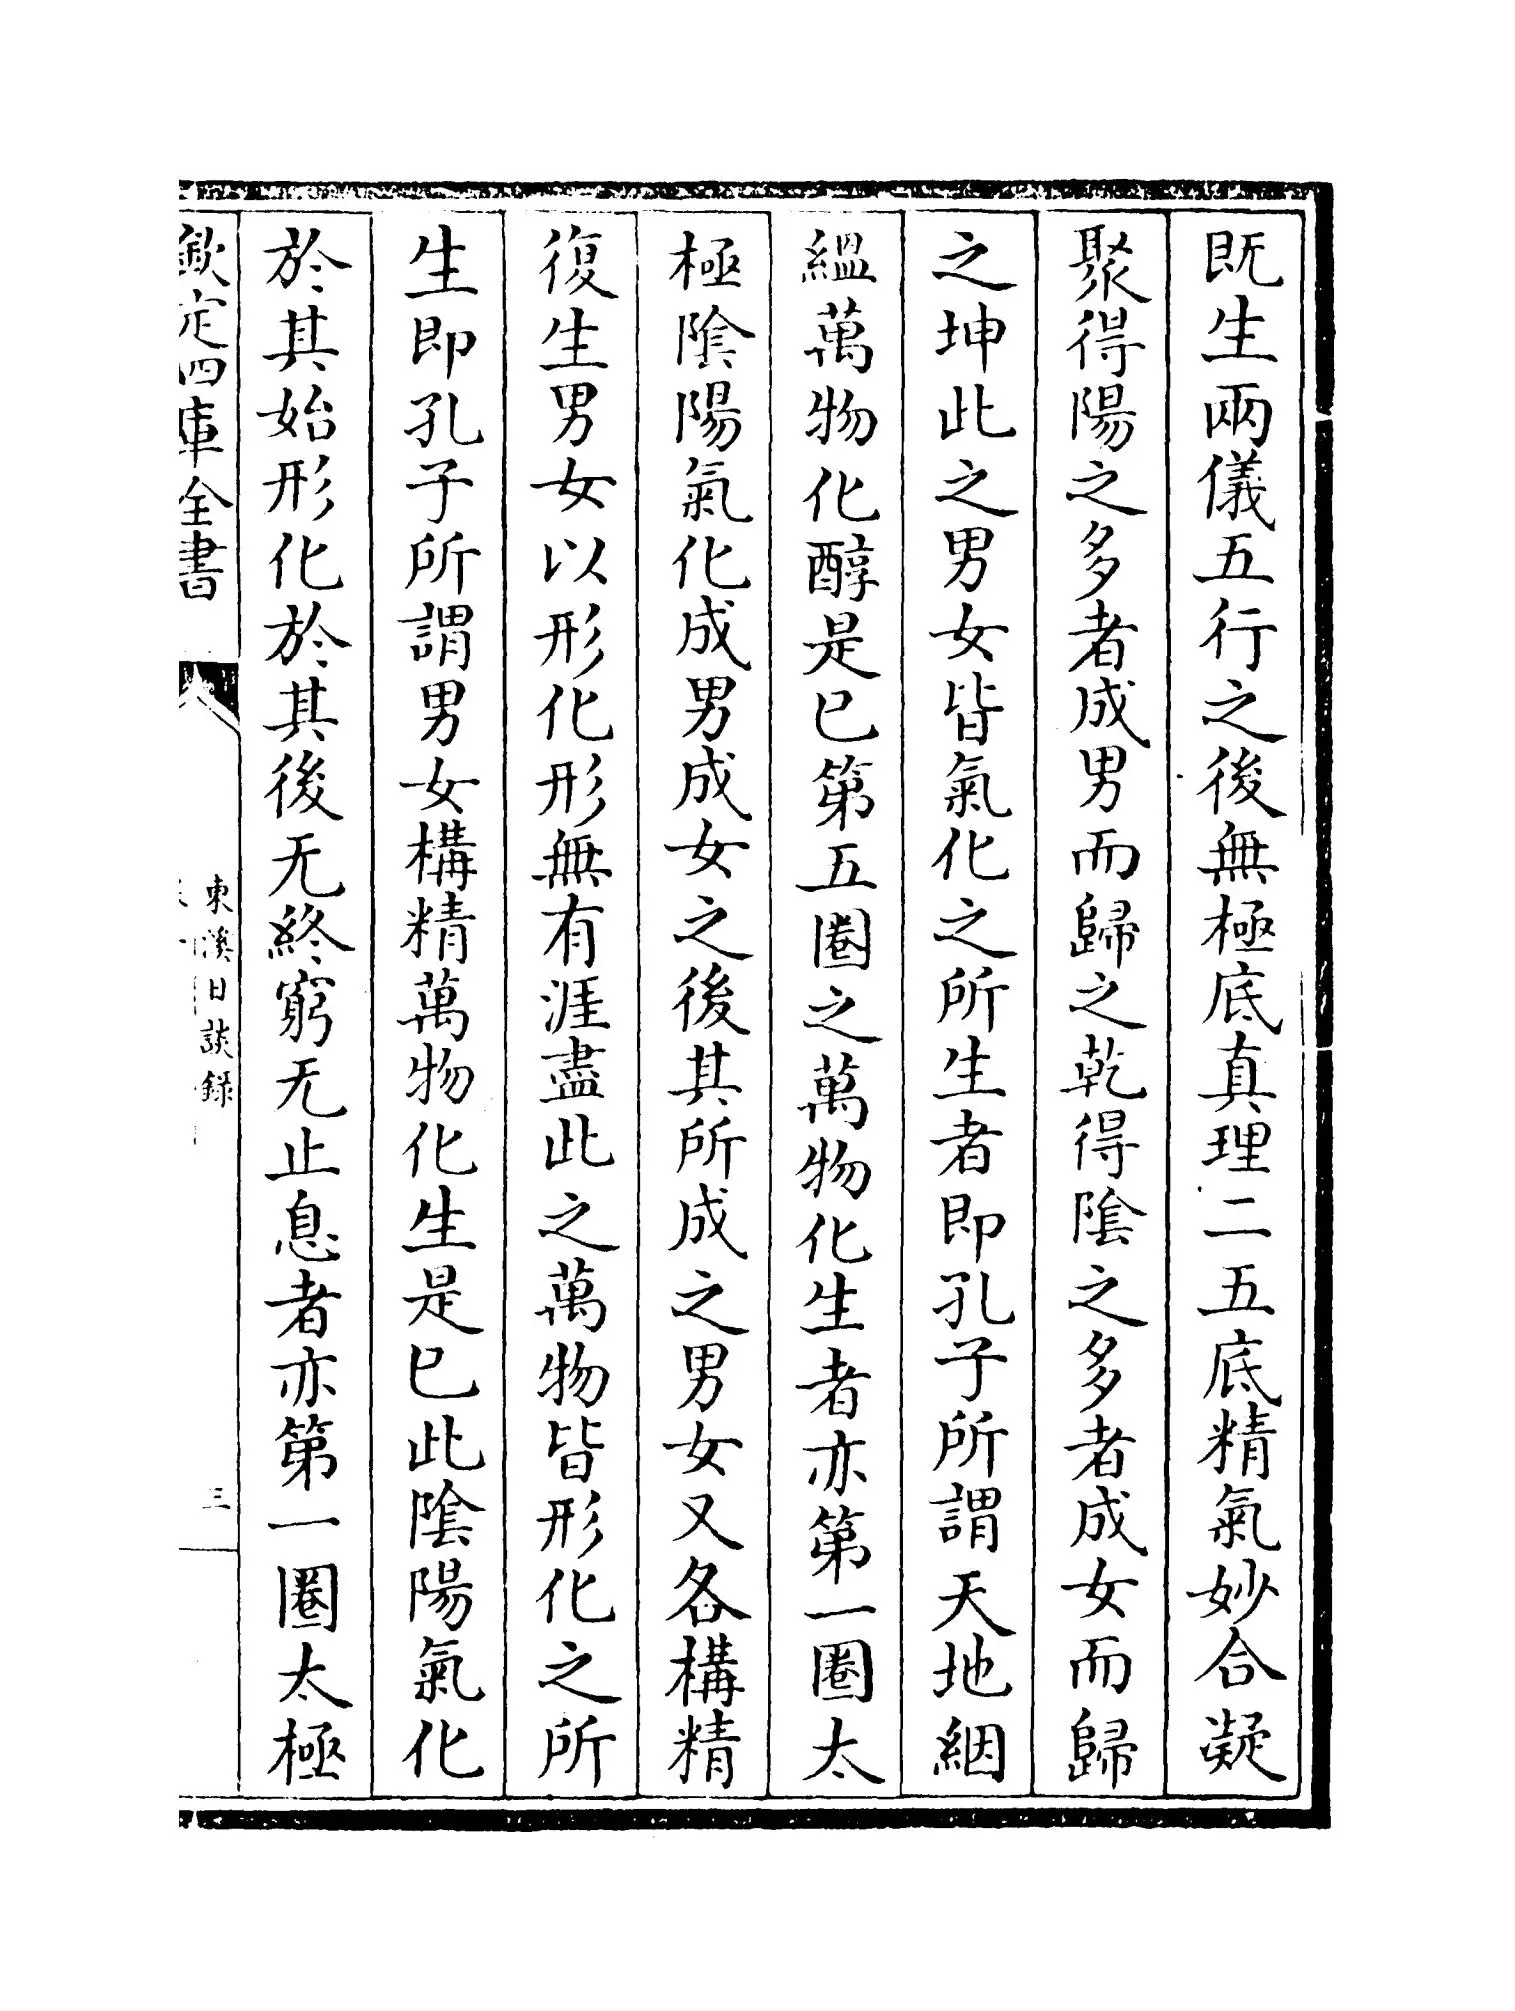 既生兩儀五行之後無極底真理二五底精氣妙合凝
聚得陽之多者成男而歸之乾得陰之多者成女而歸
之坤此之男女皆氣化之所生者即孔子所謂天地絪
緼萬物化醇是已第五圈之萬物化生者亦第一圈太
極陰陽氣化成男成女之後其所成之男女又各構精
復生男女以形化形無有涯盡此之萬物皆形化之所
生即孔子所謂男女構精萬物化生是已此陰陽氣化
於其始形化於其後无終窮无止息者亦第一圈太極
欽定四庫全書
東溪日談録
三